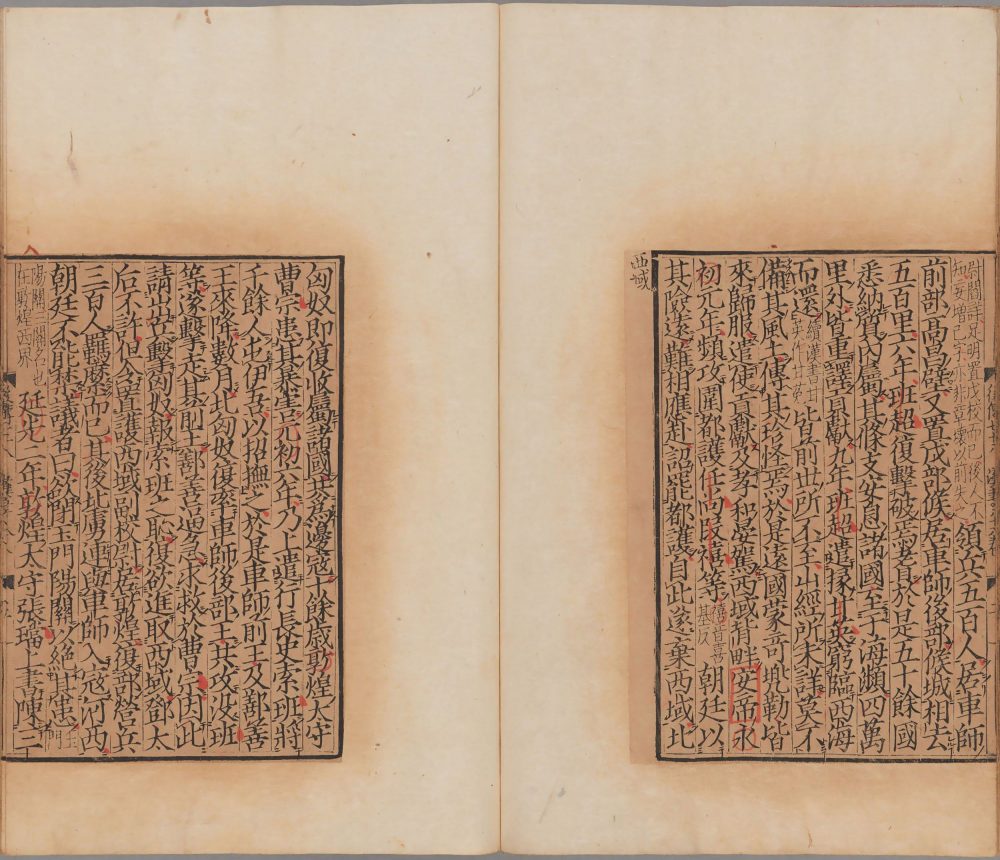 領兵五百人居車師
前部高昌壁又置戊部候居車師後部候城相去
五百里六年班超復擊破焉耆於是五十餘國
悉納質內屬其條支安息諸國至于海瀕四萬
里外皆重譯貢獻九年班超遣掾甘英窮臨西海
而還續漢書甘英作甘菟皆前世所不至山經所未詳莫不
備其風土傳其珍怪焉於是遠國蒙奇兜勒皆
來歸服遣使貢獻及孝和晏駕西域背畔安帝永
初元年頻攻圍都護任尚段禧等禧音喜基反朝廷以
其險遠難相應赴詔罷都護自此遂棄西域北
西域
匈奴即復收屬諸國共為邊寇十餘歲敦煌太守
曹宗患其暴害元初六年乃上遣行長史索班將
千餘人屯伊吾以招撫之於是車師前王及鄯善
王來降數月北匈奴復率車師後部王共攻沒班
等遂擊走其前王鄯善逼急求救於曹宗因此
請出兵擊匈奴報索班之恥復欲進取西域鄧太
后不許但令置護西域副校尉居敦煌復部營兵
三百人羈縻而已其後北虜連與車師入寇河西
朝廷不能禁議者因欲閉玉門陽關以絕其患玉門
陽關二關名也在敦煌西界延光二年敦煌太守張璫上書陳三